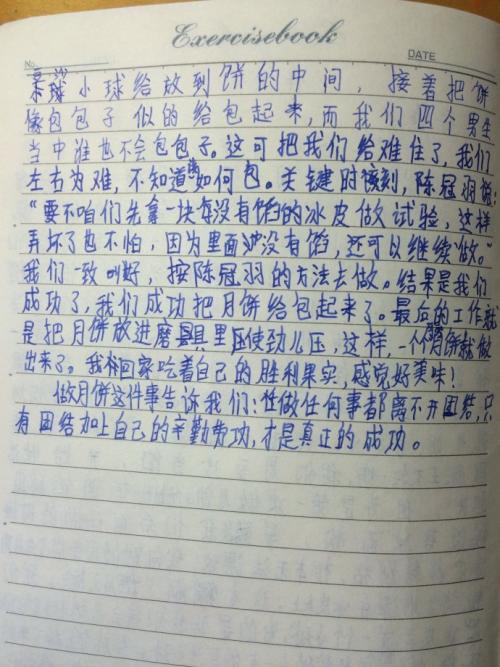 Exercisebook
No.
DATE
小球给放到饼的中间，接着把饼
像包包子似的给包起来，而我们四个男生
当中谁也不会包包子。这可把我们给难住了，我们
左右为难，不知道如何包。关键时刻，陈冠羽说：
“要不咱们先拿一块没有馅的冰皮做试验，这样
弄坏了也不怕，因为里面没有馅，还可以继续做。”
我们一致叫好，按陈冠羽的方法去做。结果是我们
成功了，我们成功把月饼给包起来了。最后的工作就
是把月饼放进磨具里压使劲儿压，这样，一个月饼就做
出来了。我们回家吃着自己的胜利果实，感觉好美味！
做月饼这件事告诉我们：做任何事都离不开团结，只
有团结加上自己的辛勤费功，才是真正的成功。